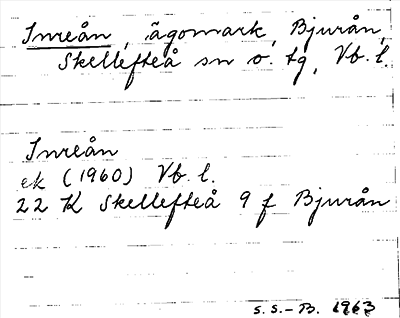 Inreån, ägomark, Bjurån,
Skellefteå sn o. tg, Vb. l.
Inreån
ek (1960) Vb. l.
22 K Skellefteå 9 f Bjurån
S.S.-B. 1963